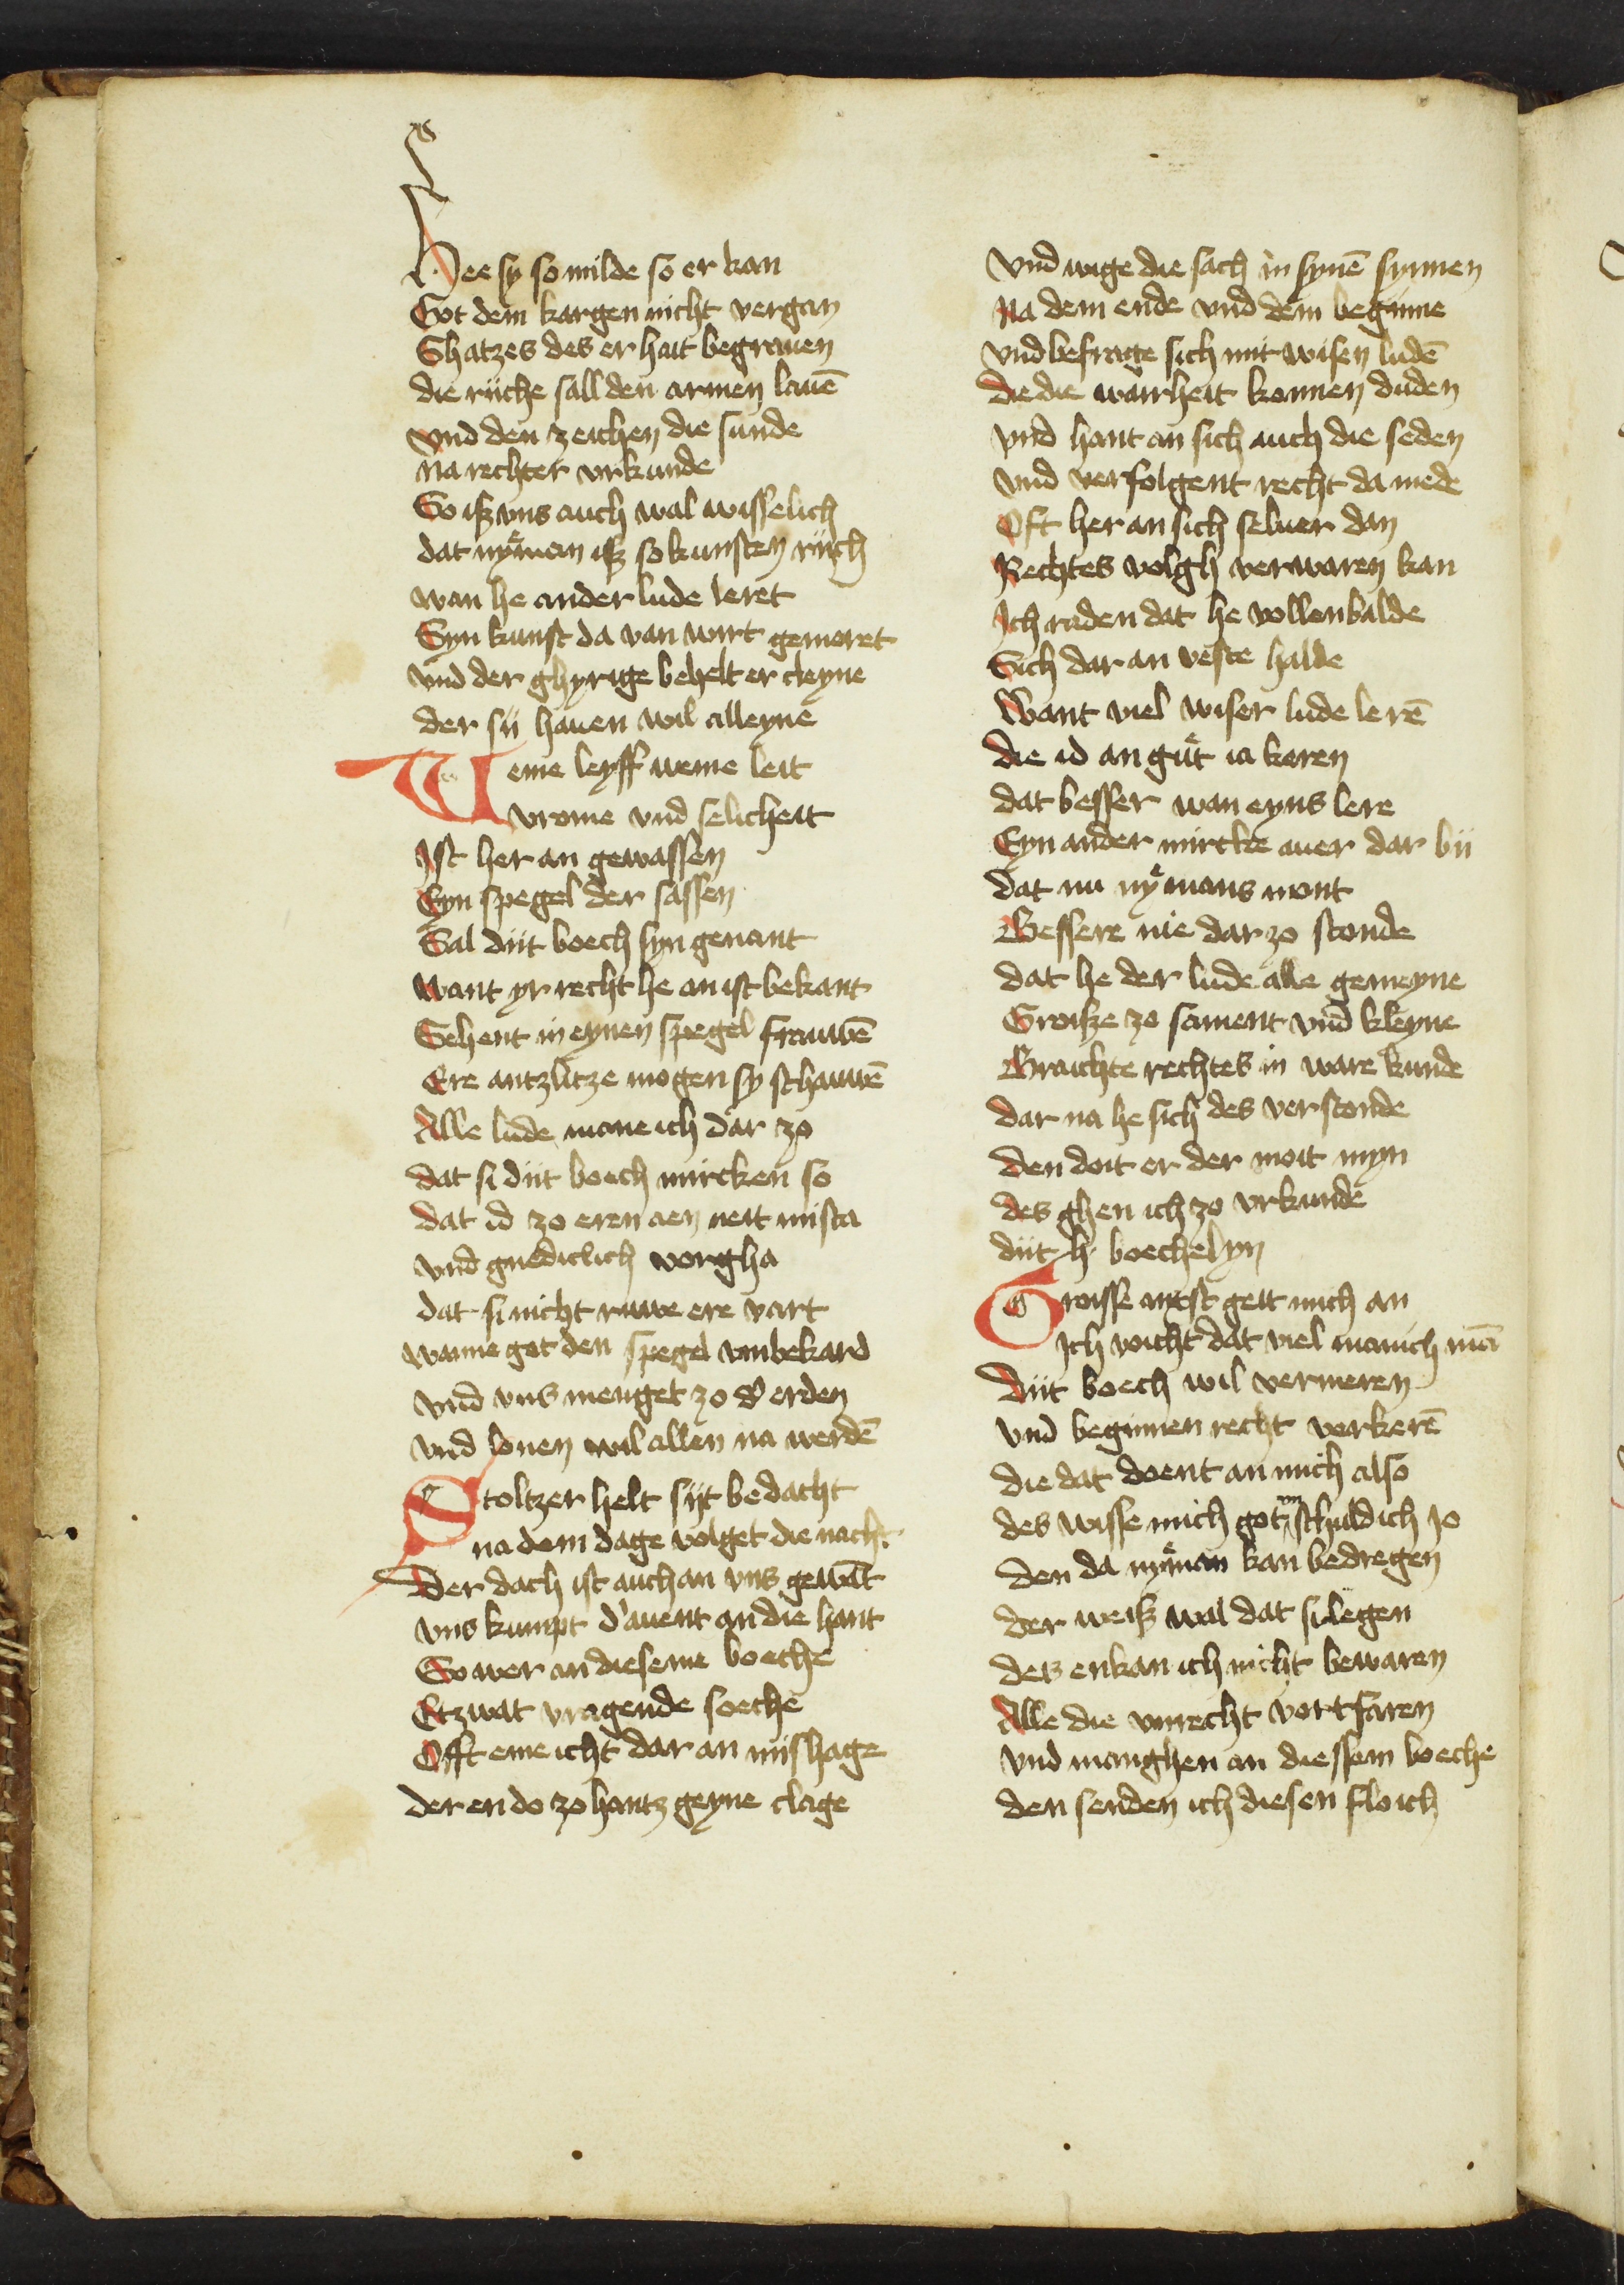 Hee sy so milde so er kan
Got dem kargen nicht vergan
Shatzes des er hait begrauen
die riiche sall den armen lauē
vnd den zeichen die sunde
na rechter vrkunde
So iß vns auch wal wisselich
dat nyͤman iß so kunsten riich
wan he ander lude leret
Syn kunst da van wirt gemeret
vnd der ghyrige behelt er cleyne
der sii hauen wil alleyne
Weme leyff weme leit
vrome vnd selicheit
Ist her an gewassen
Eyn spegel der sassen
Sal diit boech syn genant
want yr recht he an ist bekant
Sehent in eynen spegel frauwē
Ere antzlitze mogen sy schauwē
Alle lude mane ich dar zo
dat si diit boech mircken so
dat id zo eren aen neit missta
vnd gnediclich vorgha
dat si nicht ruwe ere vart
wanne got den spegel vmbekard
vnd vns menget zo d' erden
vnd lonen wil allen na werdē
Stoltzer helt siit bedacht
na dem dage volget die nacht
Der dach ist auch an vns gewāt
vns kumpt d' auent an die hant
So wer an dieseme boeche
Etzwat vragende soeche
Offt eme icht dar an miishage
der en do zo hantz geyne clage
vnd wige die sach in synē synnen
na dem ende vnd dem beginne
vnd befrage sich mit wisen ludē
die die wairheit konnen duden
vnd hant an sich auch die seden
vnd verfolgent recht da mede
Oft her an sich seluer dan
Rechtes volgh verwaren kan
Ich raden dat he vollenbalde
Sich dar an veste halde
Want viel wiser lude lerē
die id an guͤt ia keren
dat besser wan eyns lere
Eyn ander mircke auer dar bii
dat nu nyͤmans mont
Bessere nie dar zo stonde
dat he der lude alle gemeyne
Groiße zo sament vnd kleyne
Braichte rechtes in ware kunde
dar na he sich des verstonde
den doit er der moit myn
des ghen ich zo vrkunde
diit h boechelyn
Groisse anxst geit mich an
Ich voicht dat viel manich mā
diit boech wil vermeren
vnd beginnen recht verkerē
die dat doent an mich also
des wisse mich got vnschuldich jo
den da nyͤman kan bedregen
der weiß wal dat si legen
des enkan ich nicht bewaren
Alle die vnrecht vortfaren
vnd manghen an diessem boeche
den senden ich diesen floich